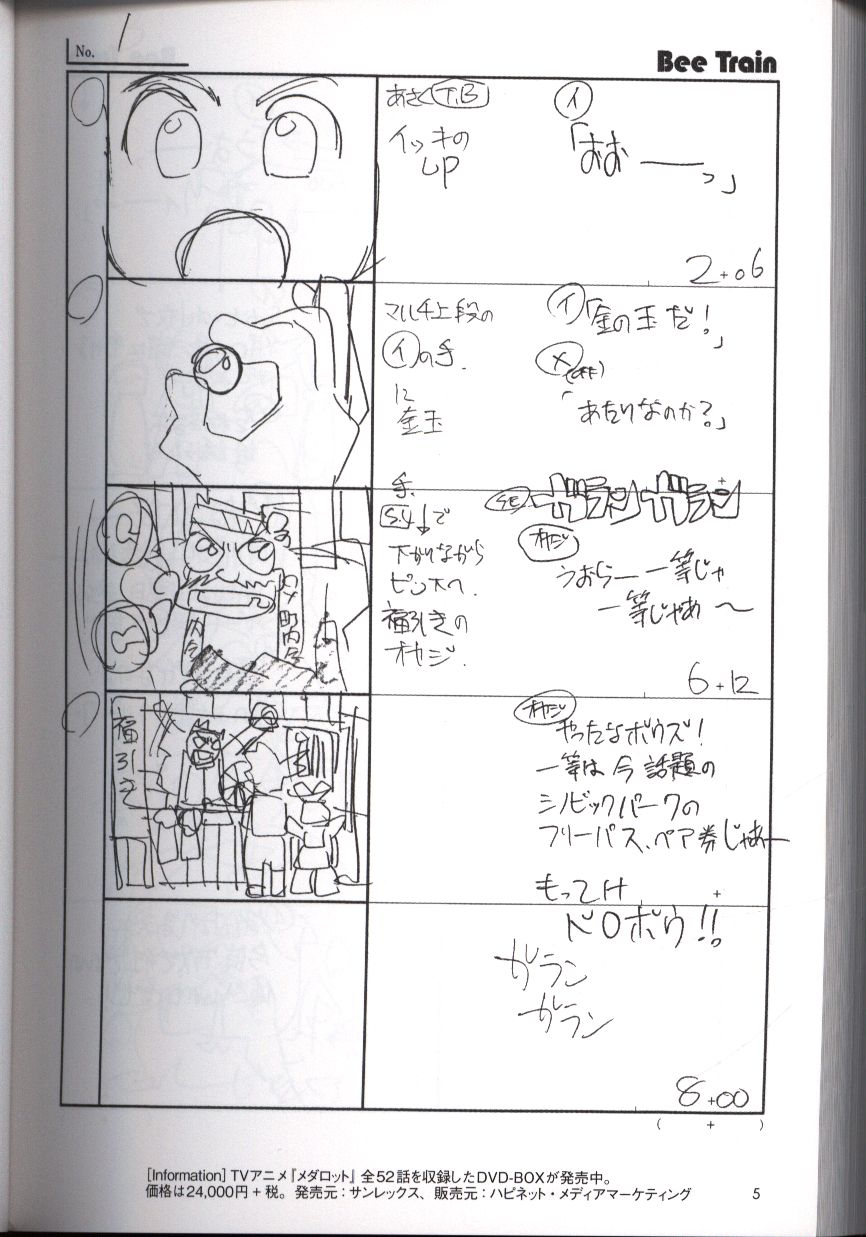 No. 1
Bee Train
あさく T.B
イッキの
UP
イ
「おおーっ」
2+06
マルチ上段の
イの手
に
金玉
イ「金の玉だ!」
メ
「あたりなのか?」
手
S.4↓で
下がりながら
ピン木へ
福引きの
オヤジ
SE ガランガラン
オヤジ
うおらー 一等じゃ
一等じゃあ〜
町内会
6+12
福引き
オヤジ
やったなボウズ!
一等は今話題の
シノビックパークの
フリーパス、ペア券じゃあー
もってけ
ドロボウ!!
ガラン
ガラン
8+00
( + )
[Information] TVアニメ『メダロット』全52話を収録したDVD-BOXが発売中。
価格は24,000円+税。発売元:サンレックス、販売元:ハピネット・メディアマーケティング
5